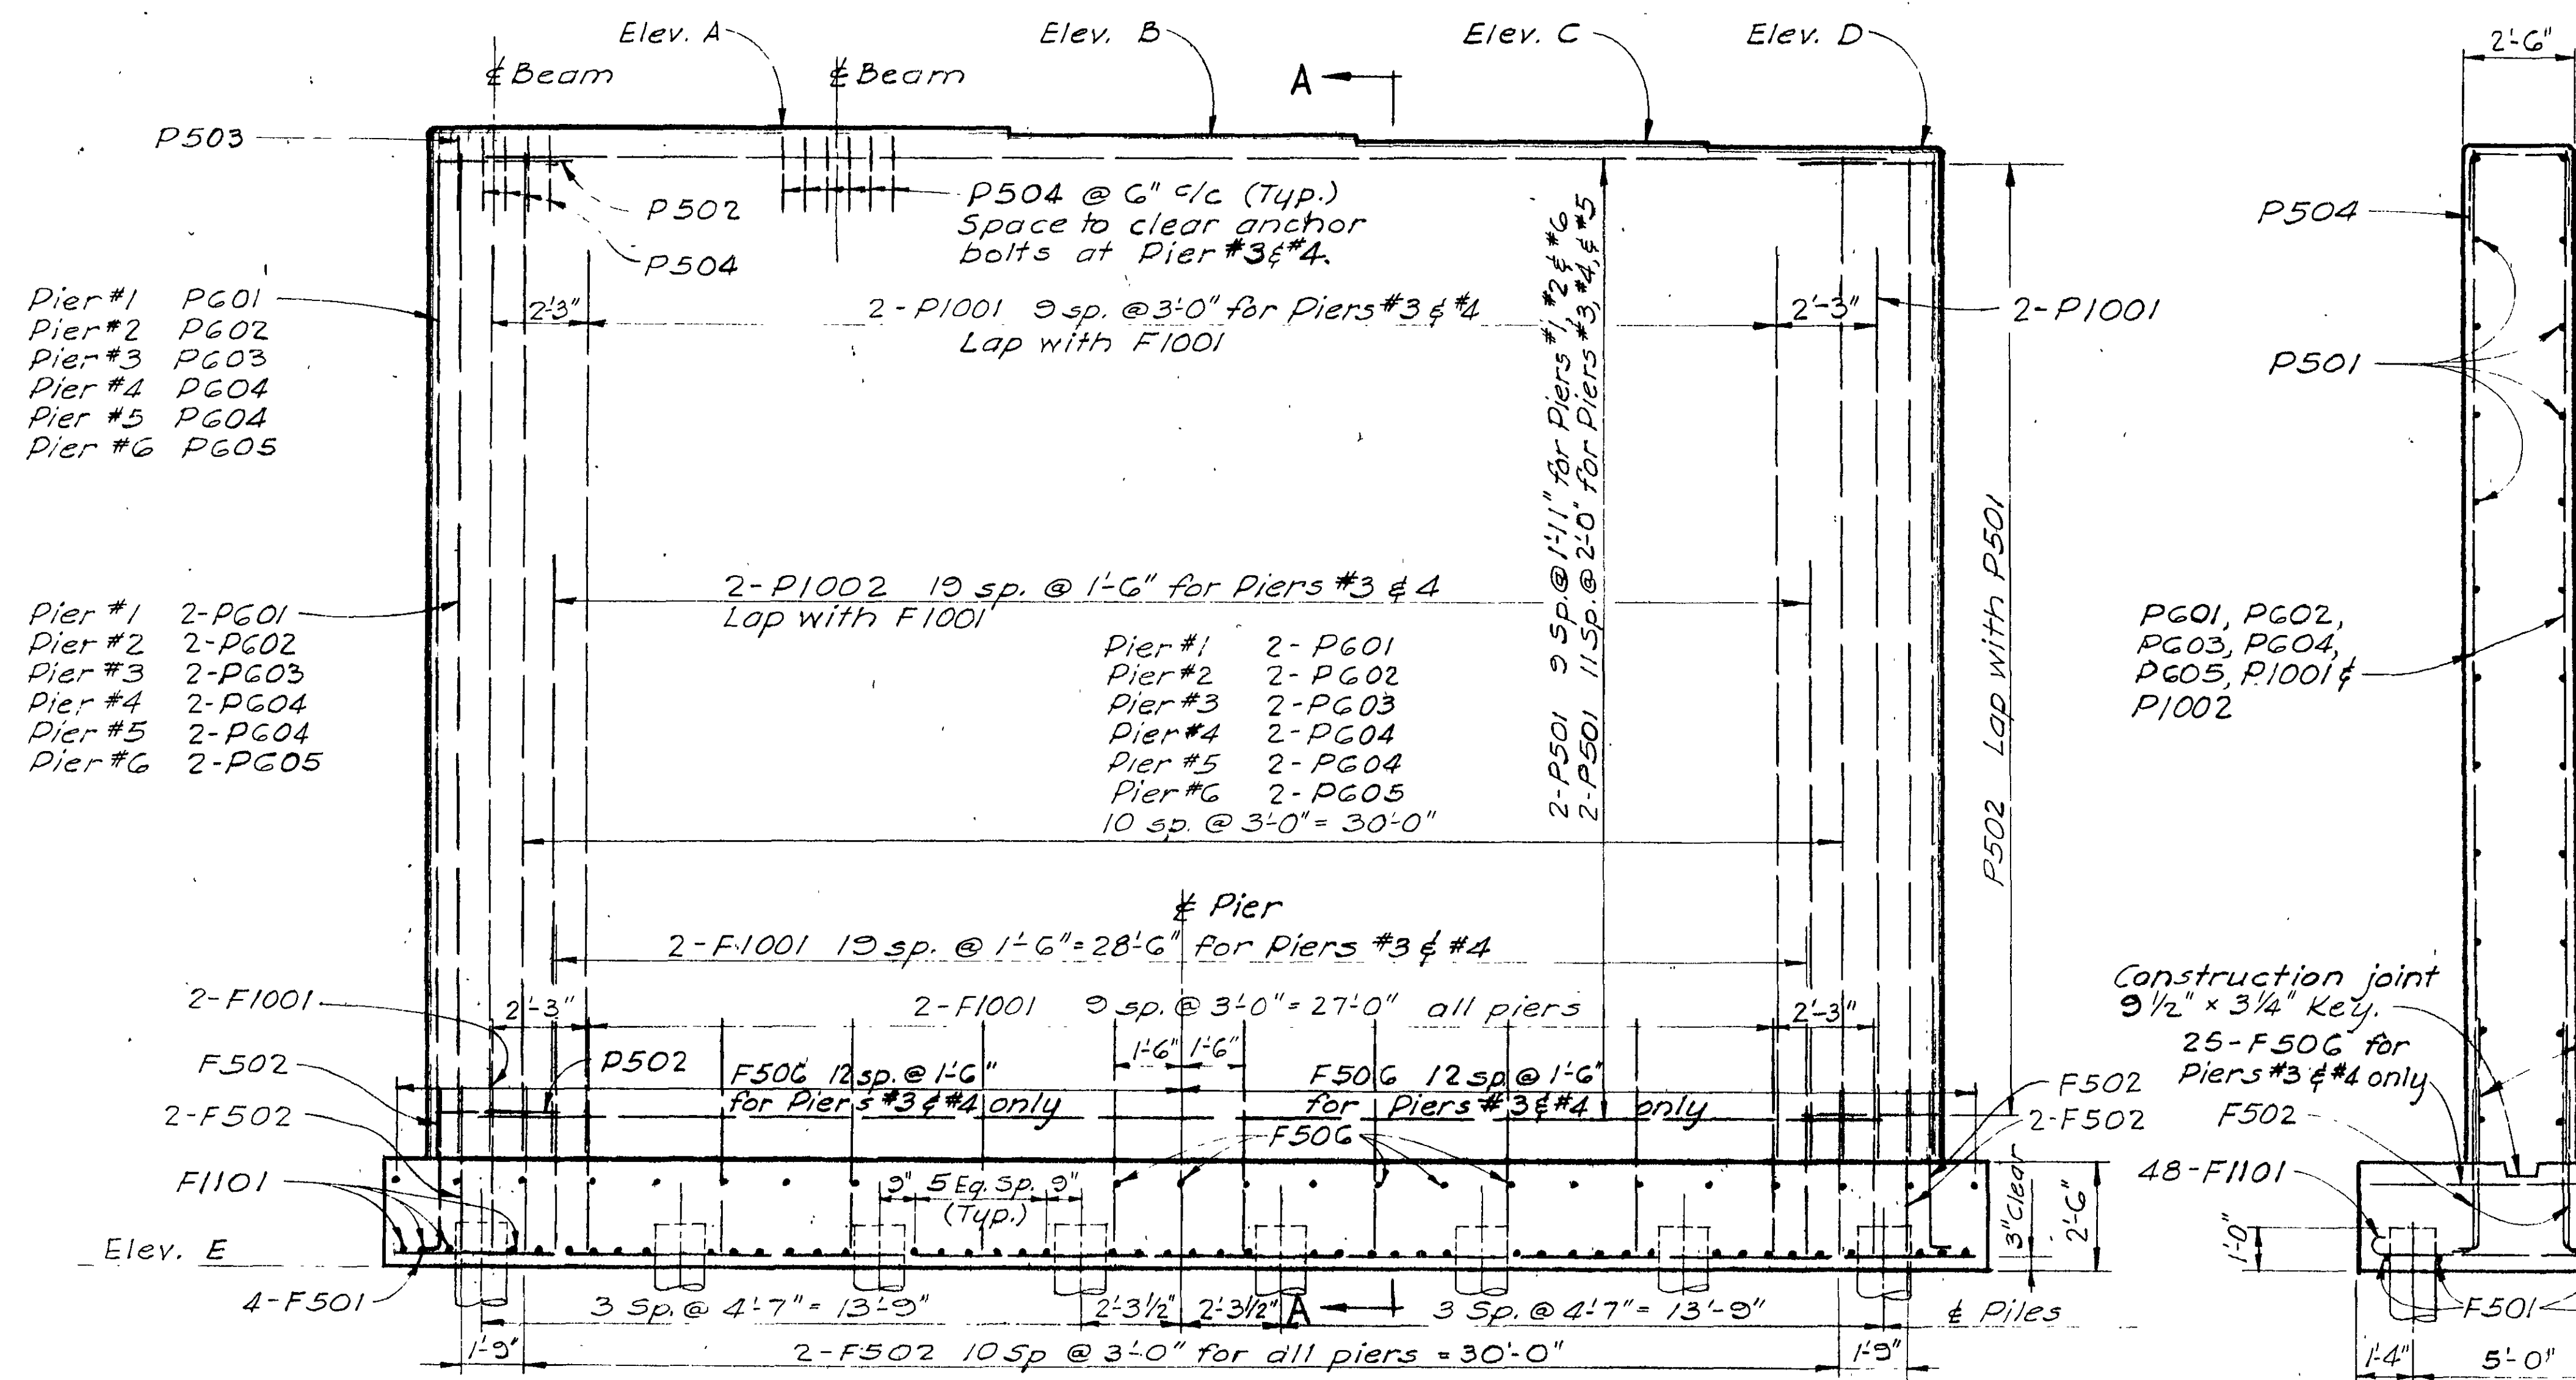 Elev. A
Elev. B
Elev. C
Elev. D
2'-6"
℄ Beam
℄ Beam
A
P503
P502
P504
P504 @ 6" c/c (Typ.)
Space to clear anchor
bolts at Pier #3 & #4.
P504
Pier #1 P601
Pier #2 P602
Pier #3 P603
Pier #4 P604
Pier #5 P604
Pier #6 P605
2'-3"
2-P1001 9 sp. @ 3'-0" for Piers #3 & #4
Lap with F1001
2'-3"
2-P1001
P501
2-P501 9 Sp. @ 1'-11" for Piers #1, #2 & #6
2-P501 11 Sp. @ 2'-0" for Piers #3, #4, & #5
P502 Lap with P501
2-P1002 19 sp. @ 1'-6" for Piers #3 & 4
Lap with F1001
Pier #1 2-P601
Pier #2 2-P602
Pier #3 2-P603
Pier #4 2-P604
Pier #5 2-P604
Pier #6 2-P605
Pier #1 2-P601
Pier #2 2-P602
Pier #3 2-P603
Pier #4 2-P604
Pier #5 2-P604
Pier #6 2-P605
10 sp. @ 3'-0" = 30'-0"
P601, P602,
P603, P604,
P605, P1001 &
P1002
℄ Pier
2-F1001 19 sp. @ 1'-6" = 28'-6" for Piers #3 & #4
2-F1001
2'-3"
2-F1001 9 sp. @ 3'-0" = 27'-0" all piers
2'-3"
Construction joint
9 1/2" x 3 1/4" Key.
25-F506 for
Piers #3 & #4 only
F502
P502
F506 12 sp. @ 1'-6"
for Piers #3 & #4 only
1'-6"
1'-6"
F506 12 sp @ 1'-6"
for Piers #3 & #4 only
F502
2-F502
2-F502
F502
F506
F1101
9"
5 Eq. Sp.
(Typ.)
9"
3" Clear
2'-6"
48-F1101
1'-0"
Elev. E
4-F501
3 Sp. @ 4'-7" = 13'-9"
2'-3 1/2"
2'-3 1/2"
A
3 Sp. @ 4'-7" = 13'-9"
℄ Piles
F501
1'-9"
2-F502 10 Sp @ 3'-0" for all piers = 30'-0"
1'-9"
1'-4"
5'-0"